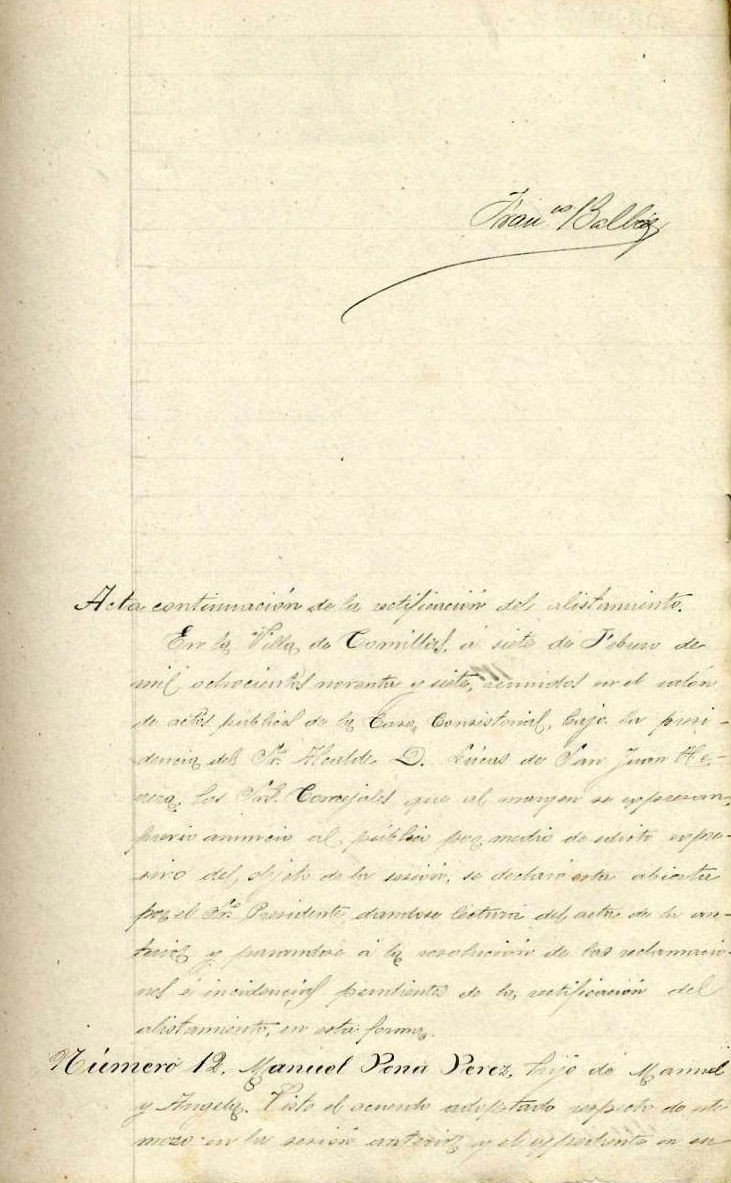 Fran.co Balbás
Acta continuación de la rectificación del alistamiento.
En la Villa de Comillas, á siete de Febrero de
mil ochocientos noventa y siete, reunidos en el salón
de actos públicos de la Casa Consistorial, bajo la presi-
dencia del Sr. Alcalde D. Lúcas de San Juan He-
rrera, los Sres. Concejales que al margen se expresan,
previo anuncio al público por medio de edicto expre-
sivo del objeto de la sesión, se declaró esta abierta
por el Sr. Presidente, dandose lectura del acta de la an-
terior y pasandose á la resolución de las reclamacio-
nes é incidencias pendientes de la rectificación del
alistamiento, en esta forma.
Número 12. Manuel Pena Perez, hijo de Manuel
y Angela. Visto el acuerdo adoptado respecto de este
mozo en la sesión anterior y el expediente en su